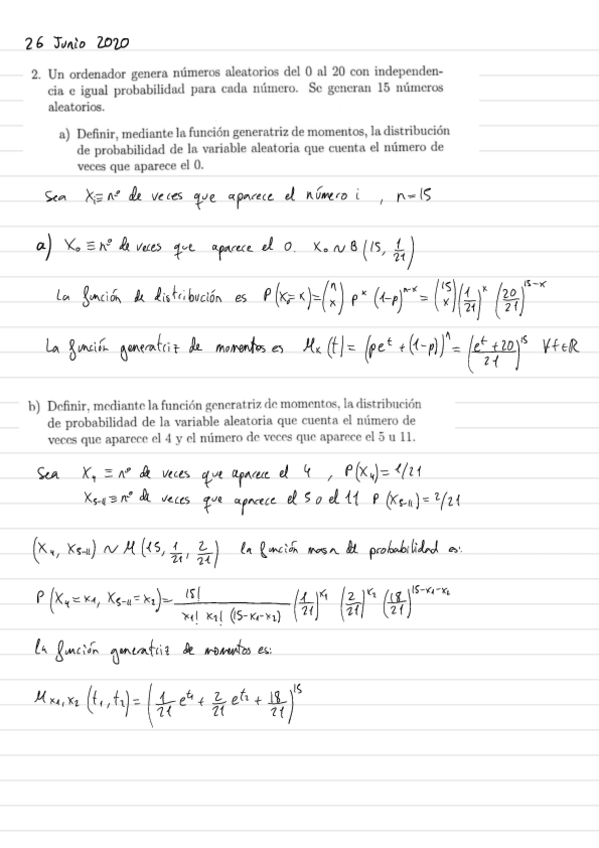 26 Junio 2020
2. Un ordenador genera números aleatorios del 0 al 20 con independen-
cia e igual probabilidad para cada número. Se generan 15 números
aleatorios.
a) Definir, mediante la función generatriz de momentos, la distribución
de probabilidad de la variable aleatoria que cuenta el número de
veces que aparece el 0.
Sea Xᵢ ≡ nº de veces que aparece el número i , n=15
a) X₀ ≡ nº de veces que aparece el 0. X₀ ~ B(15, 1/21)
La función de distribución es P(X₀=x) = (n x) pˣ (1-p)ⁿ⁻ˣ = (15 x) (1/21)ˣ (20/21)¹⁵⁻ˣ
La función generatriz de momentos es Mₓ(t) = (peᵗ + (1-p))ⁿ = ((eᵗ+20)/21)¹⁵ ∀t∈R
b) Definir, mediante la función generatriz de momentos, la distribución
de probabilidad de la variable aleatoria que cuenta el número de
veces que aparece el 4 y el número de veces que aparece el 5 u 11.
Sea X₄ ≡ nº de veces que aparece el 4 , P(X₄) = 1/21
X₅₋₁₁ ≡ nº de veces que aparece el 5 o el 11 P(X₅₋₁₁) = 2/21
(X₄, X₅₋₁₁) ~ M(15, 1/21, 2/21) la función masa de probabilidad es:
P(X₄=x₁, X₅₋₁₁=x₂) = 15!/(x₁! x₂! (15-x₁-x₂)) (1/21)^x₁ (2/21)^x₂ (18/21)^15-x₁-x₂
La función generatriz de momentos es:
M x₁,x₂ (t₁,t₂) = (1/21 e^t₁ + 2/21 e^t₂ + 18/21)¹⁵